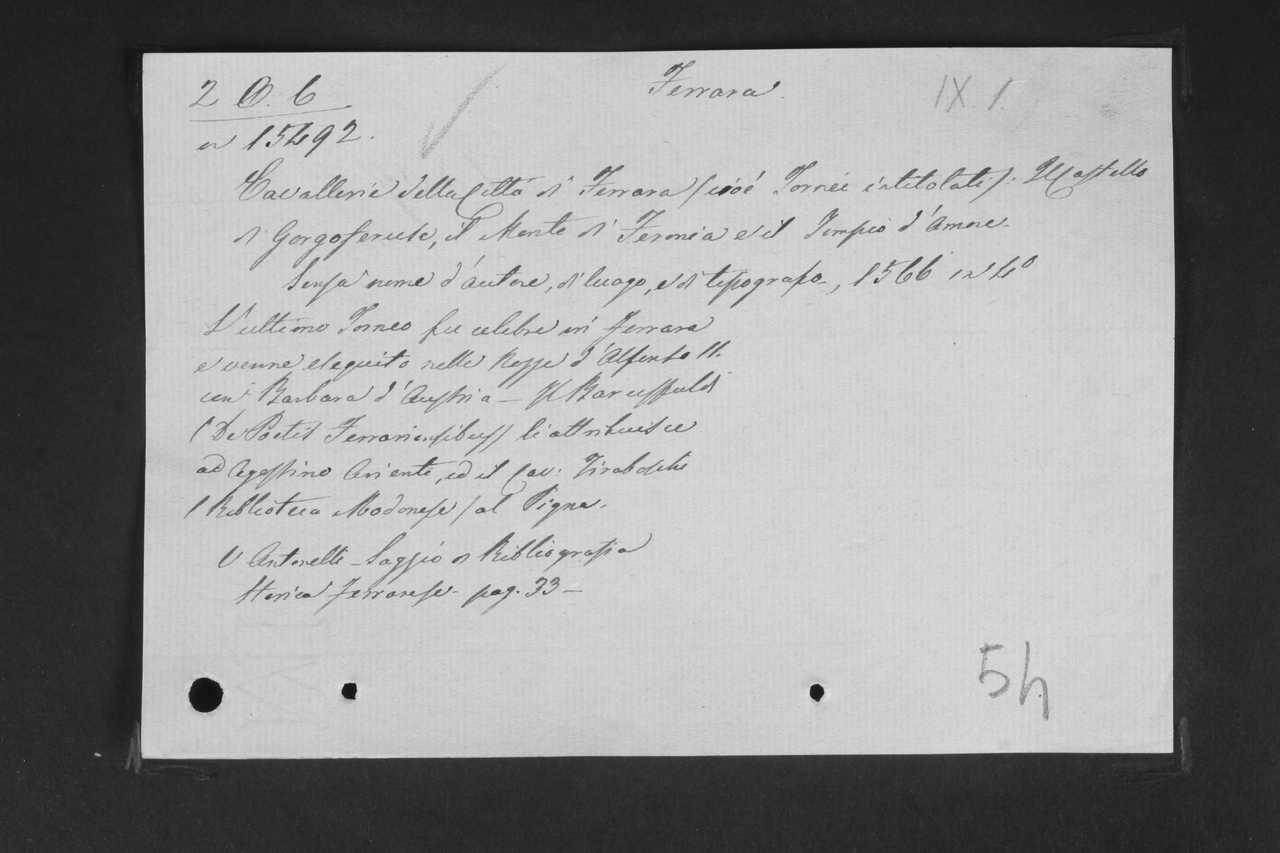 2 O. 6
Ferrara.
IX 1.
n 15492.
Cavallerie della Città di Ferrara (cioè Tornei intitolati): Il Castello
di Gorgoferusa, il Monte di Feronia e il Tempio d'Amore.
Senza nome d'autore, di luogo, e di tipografo, 1566 in 4º
L'ultimo Torneo fu celebre in Ferrara
e venne eseguito nelle Nozze d'Alfonso II.
con Barbara d'Austria – Il Baruffaldi
(De Poetis Ferrariensibus) li attribuisce
ad Agostino Argenti, ed il Cav. Tiraboschi
(Biblioteca Modonese) al Pigna.
V Antonelli – Saggio di Bibliografia
Storica ferrarese – pag. 33 –
54